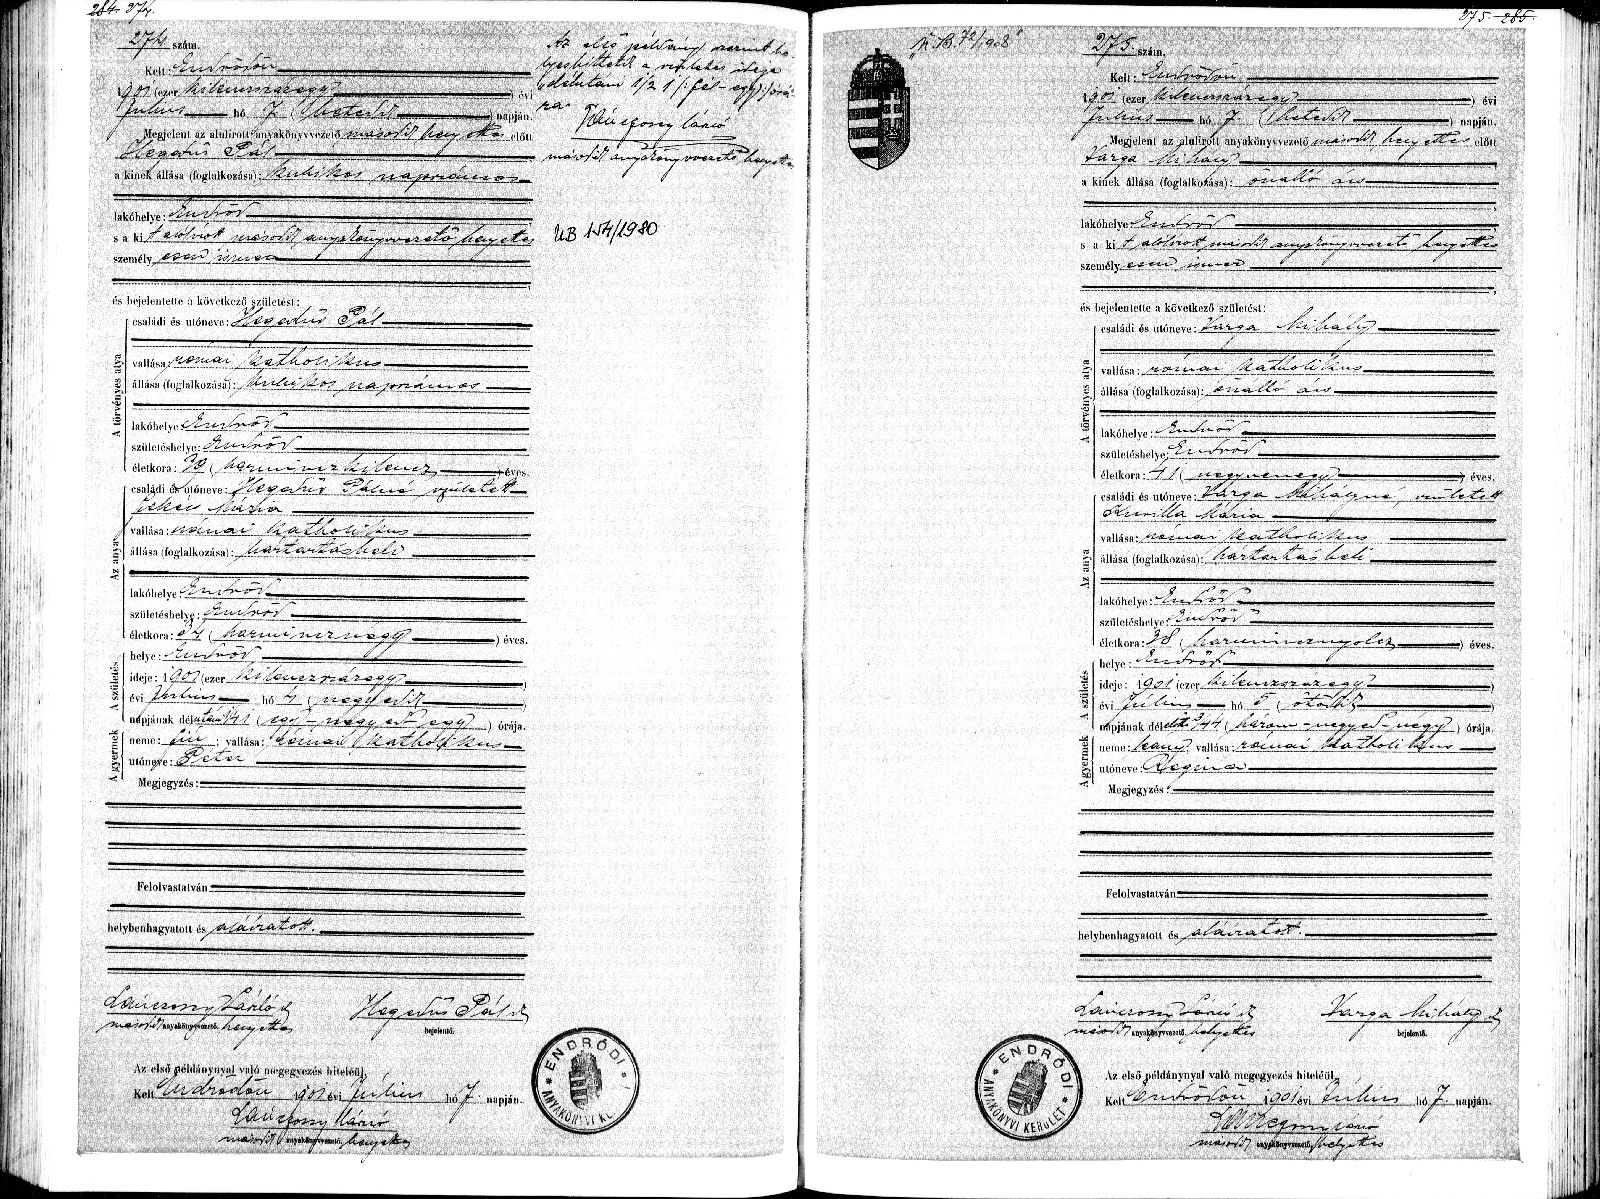 284. 274.
274. szám.
Kelt Endrődön
1901 (ezer kilenczszázegy) évi
Július hó 7 (hetedik) napján.
Megjelent az alulirott anyakönyvvezető másodík helyettes előtt
Hegedüs Pál
a kinek állása (foglalkozása): kubikos napszámos
lakóhelye: Endrőd
s a kit alólirott másodík anyakönyvvezető helyettes
személyesen ismer
és bejelentette a következő születést:
A törvényes atya
családi és utóneve: Hegedüs Pál
vallása: római katholikus
állása (foglalkozása): kubikos napszámos
lakóhelye Endrőd
születéshelye: Endrőd
életkora: 39 (harminczkilencz) éves.
Az anya
családi és utóneve: Hegedüs Pálné született
Mária
vallása: római katholikus
állása (foglalkozása): háztartásbeli
lakóhelye Endrőd
születéshelye: Endrőd
életkora: 34 (harmincznégy) éves.
A születés
helye: Endrőd
ideje: 1901 (ezer kilenczszázegy)
évi Július hó 4 (negyedik)
napjának délután 1/41 (egy-negyed-egy) órája.
A gyermek
neme: fiu; vallása: római katholikus
utóneve: Péter
Megjegyzés:
Felolvastatván
helybenhagyatott és aláíratott.
másodík anyakönyvvezető. helyettes
Hegedüs Pál
bejelentő.
Az első példánynyal való megegyezés hiteléül,
Kelt Endrődön 1901 évi Július hó 7. napján.
másodík anyakönyvvezető, helyettes
ENDRŐDI
ANYAKÖNYVI KE
Az első példány szerint he-
lyesbíttetik a születés ideje
"délutáni 1/2 1 (fél-egy)" órá-
ra.
másodík anyakönyvvezető helyettes
UB 154/1980
72/1908
275. 285.
275. szám.
Kelt: Endrődön
1901 (ezer kilenczszázegy) évi
Július hó 7 (hetedik) napján.
Megjelent az alulirott anyakönyvvezető másodík helyettes előtt
Varga Mihály
a kinek állása (foglalkozása): önálló ács
lakóhelye: Endrőd
s a kit alólirott másodík anyakönyvvezető helyettes
személyesen ismer
és bejelentette a következő születést:
A törvényes atya
családi és utóneve: Varga Mihály
vallása: római katholikus
állása (foglalkozása): önálló ács
lakóhelye: Endrőd
születéshelye: Endrőd
életkora: 41 (negyvenegy) éves.
Az anya
családi és utóneve: Varga Mihályné, született
Kurilla Mária
vallása: római katholikus
állása (foglalkozása): háztartásbeli
lakóhelye: Endrőd
születéshelye: Endrőd
életkora: 38 (harmincznyolcz) éves.
A születés
helye: Endrőd
ideje: 1901 (ezer kilenczszázegy)
évi Július hó 5 (ötödik)
napjának délelőtti 3/44 (három-negyed-négy) órája.
A gyermek
neme: leány vallása: római katholikus
utóneve: Regina
Megjegyzés:
Felolvastatván
helybenhagyatott és aláíratott.
másodík anyakönyvvezető, helyettes
Varga Mihály
bejelentő.
Az első példánynyal való megegyezés hiteléül,
Kelt Endrődön 1901 évi Július hó 7. napján.
másodík anyakönyvvezető, helyettes
ENDRŐDI
ANYAKÖNYVI KERÜLET